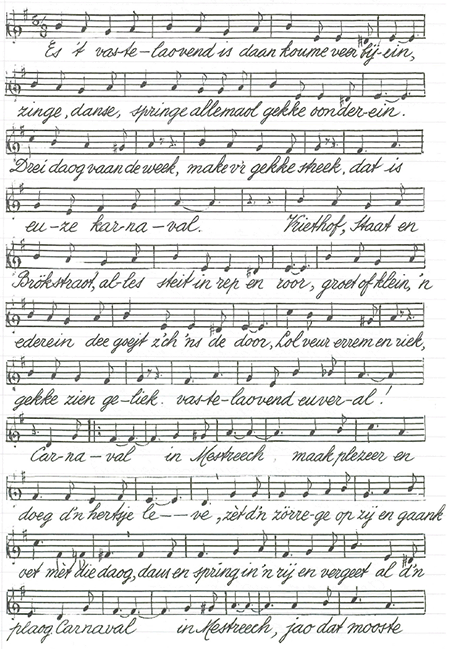 Es 't vas-te-laovend is daan koume veer bij-ein,
zinge, danse, springe allemaol gekke oonder-ein.
Drei daog vaan de week, make v'r gekke streek, dat is
eu-ze kar-na-val. Vriethof, Staat en
Brökstraot, al-les steit in rep en roor, groet of klein, 'n
ederein dee goejt z'ch 'ns de door, Lol veur errem en riek,
gekke zien ge-liek. vas-te-laovend euver-al!
Car-na-val in Mestreech. maak plezeer en
doeg d'n hertsje le--ve, zèt d'n zörre-ge op zij en gaank
vet mèt die daog, daus en spring in 'n rij en vergeet al d'n
plaog. Carnaval in Mestreech, jao dat mooste